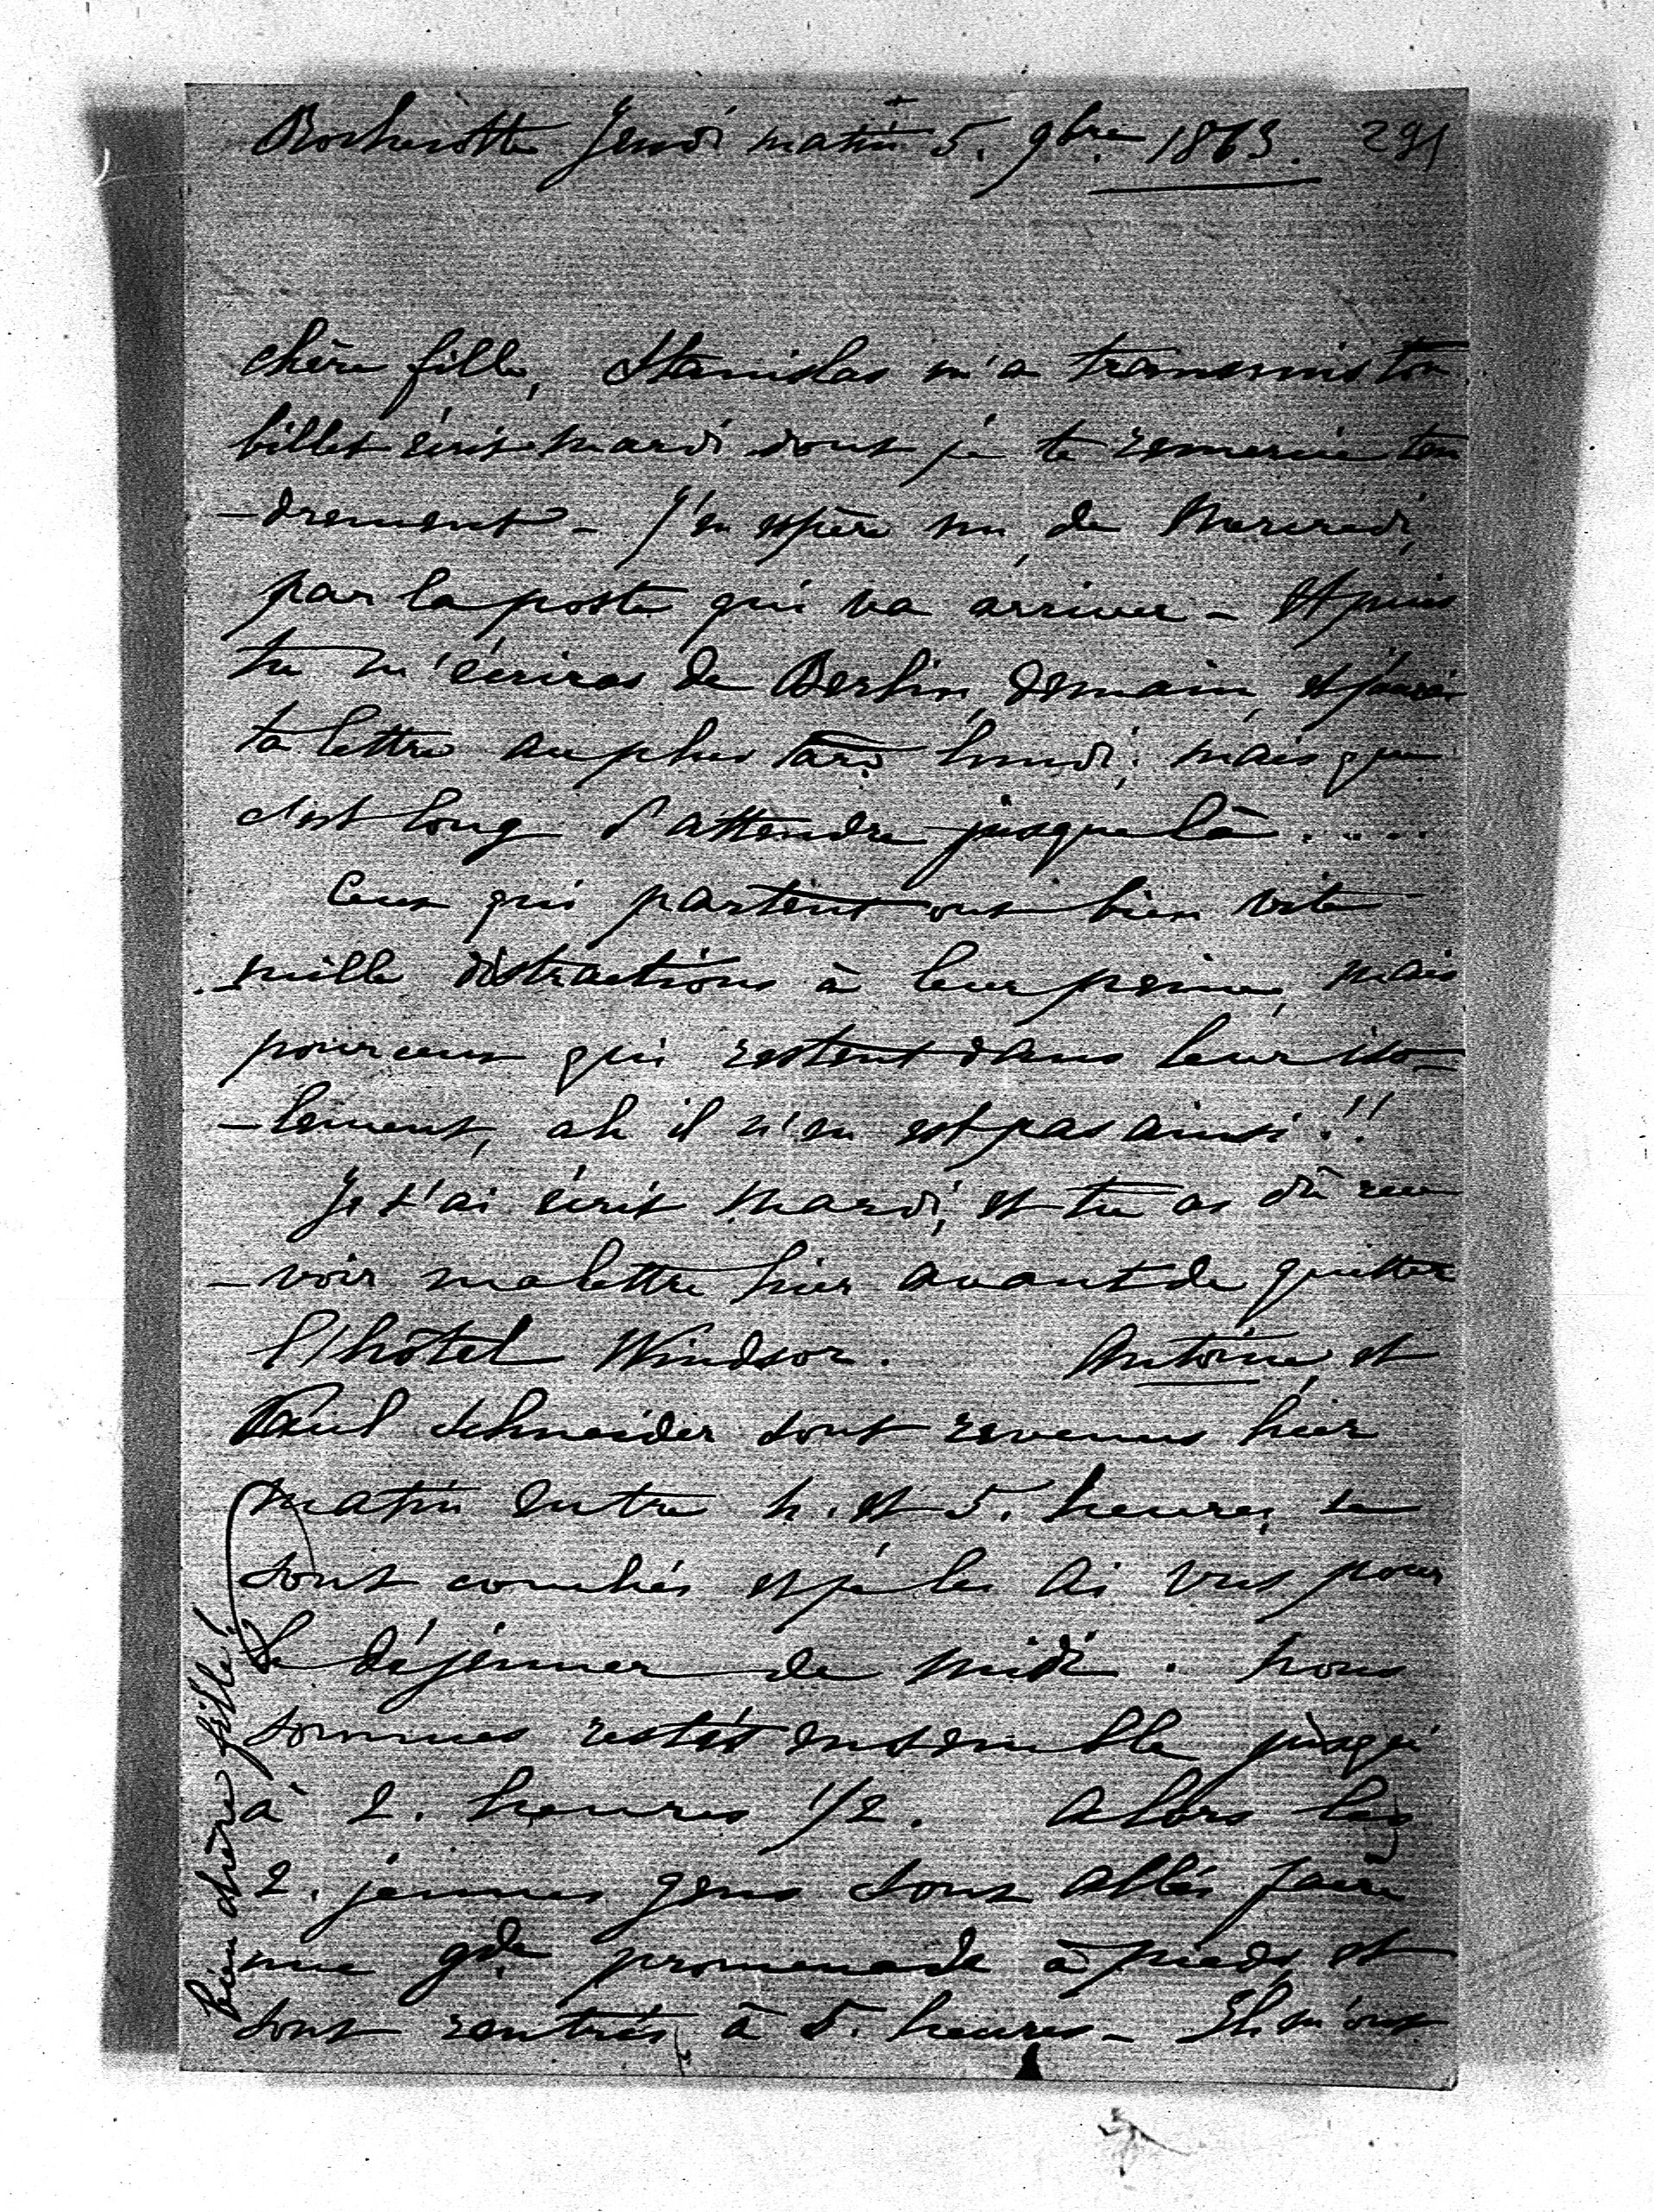 Rochecotte Jeudi matin 5. 9bre 1863. 291
chère fille, Stanislas m'a transmis ton
billet écrit mardi dont je te remercie ten
-drement - J'en espère un, de Mercredi,
par la poste qui va arriver - Et puis
tu m'écriras de Berlin, demain, et j'aurai
ta lettre au plus tard lundi; mais que
c'est long d'attendre jusque là .....
Ceux qui partent ont bien vite
mille distractions à leur peine, mais
pour ceux qui restent dans leur iso-
-lement, ah il n'en est pas ainsi !!
Je t'ai écrit Mardi, et tu as dû rece
-voir ma lettre hier avant de quitter
l'hôtel Windsor. Antoine et
Paul Schneider sont revenus hier
matin entre 4. et 5. heures, se
sont couchés et je les ai vus pour
le déjeuner de midi. Nous
sommes restés ensemble jusqu'
à 2. heures 1/2. Alors les
2. jeunes gens sont allés faire
une gde promenade à pieds, et
sont rentrés à 5. heures - Ils m'ont
bien chère fille!